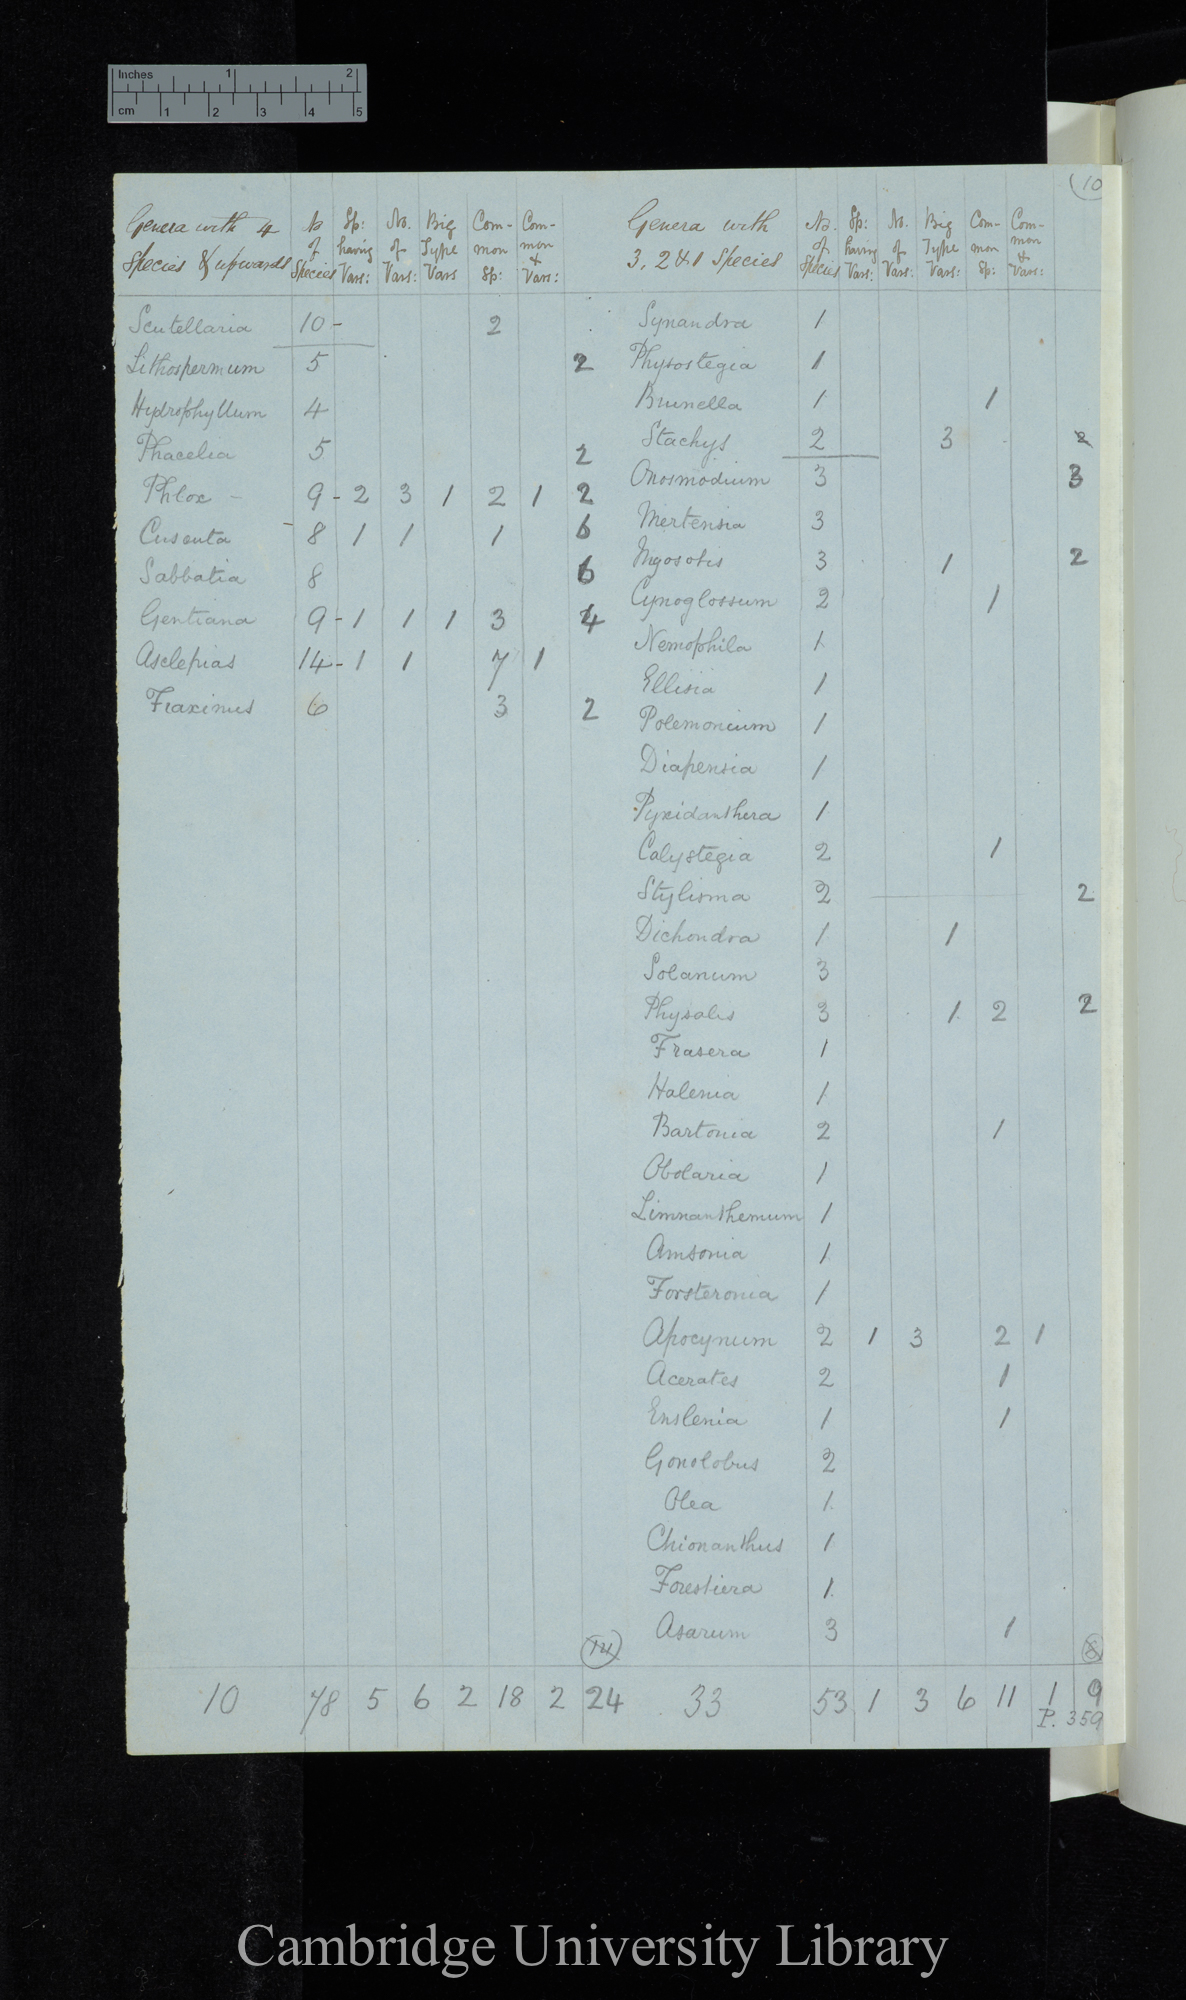 Inches 1 2
cm 1 2 3 4 5
10
Genera with 4 Species & upwards | No of Species | Sp: having Vars: | No. of Vars: | Big Type Vars | Common Sp: | Common & Vars:
Scutellaria 10 - 2
Lithospermum 5 2
Hydrophyllum 4
Phacelia 5 2
Phlox - 9 - 2 3 1 2 1 2
Cuscuta - 8 1 1 1 6
Sabbatia 8 6
Gentiana 9 - 1 1 1 3 4
Asclepias 14 - 1 1 7 1
Fraxinus 6 3 2
10 78 5 6 2 18 2 24
Genera with 3, 2 & 1 Species | No. of Species | Sp: having Vars: | No. of Vars: | Big Type Vars: | Common Sp: | Common & Vars:
Synandra 1
Physostegia 1
Brunella 1 1
Stachys 2 3 2
Onosmodium 3 3
Mertensia 3
Myosotis 3 1 2
Cynoglossum 2 1
Nemophila 1
Ellisia 1
Polemonium 1
Diapensia 1
Pyxidanthera 1
Calystegia 2 1
Stylisma 2 2
Dichondra 1 1
Solanum 3
Physalis 3 1 2 2
Frasera 1
Halenia 1
Bartonia 2 1
Obolaria 1
Limnanthemum 1
Amsonia 1
Forsteronia 1
Apocynum 2 1 3 2 1
Acerates 2 1
Enslenia 1 1
Gonolobus 2
Olea 1
Chionanthus 1
Forestiera 1
Asarum 3 1
33 53 1 3 6 11 1 9
P. 359
Cambridge University Library